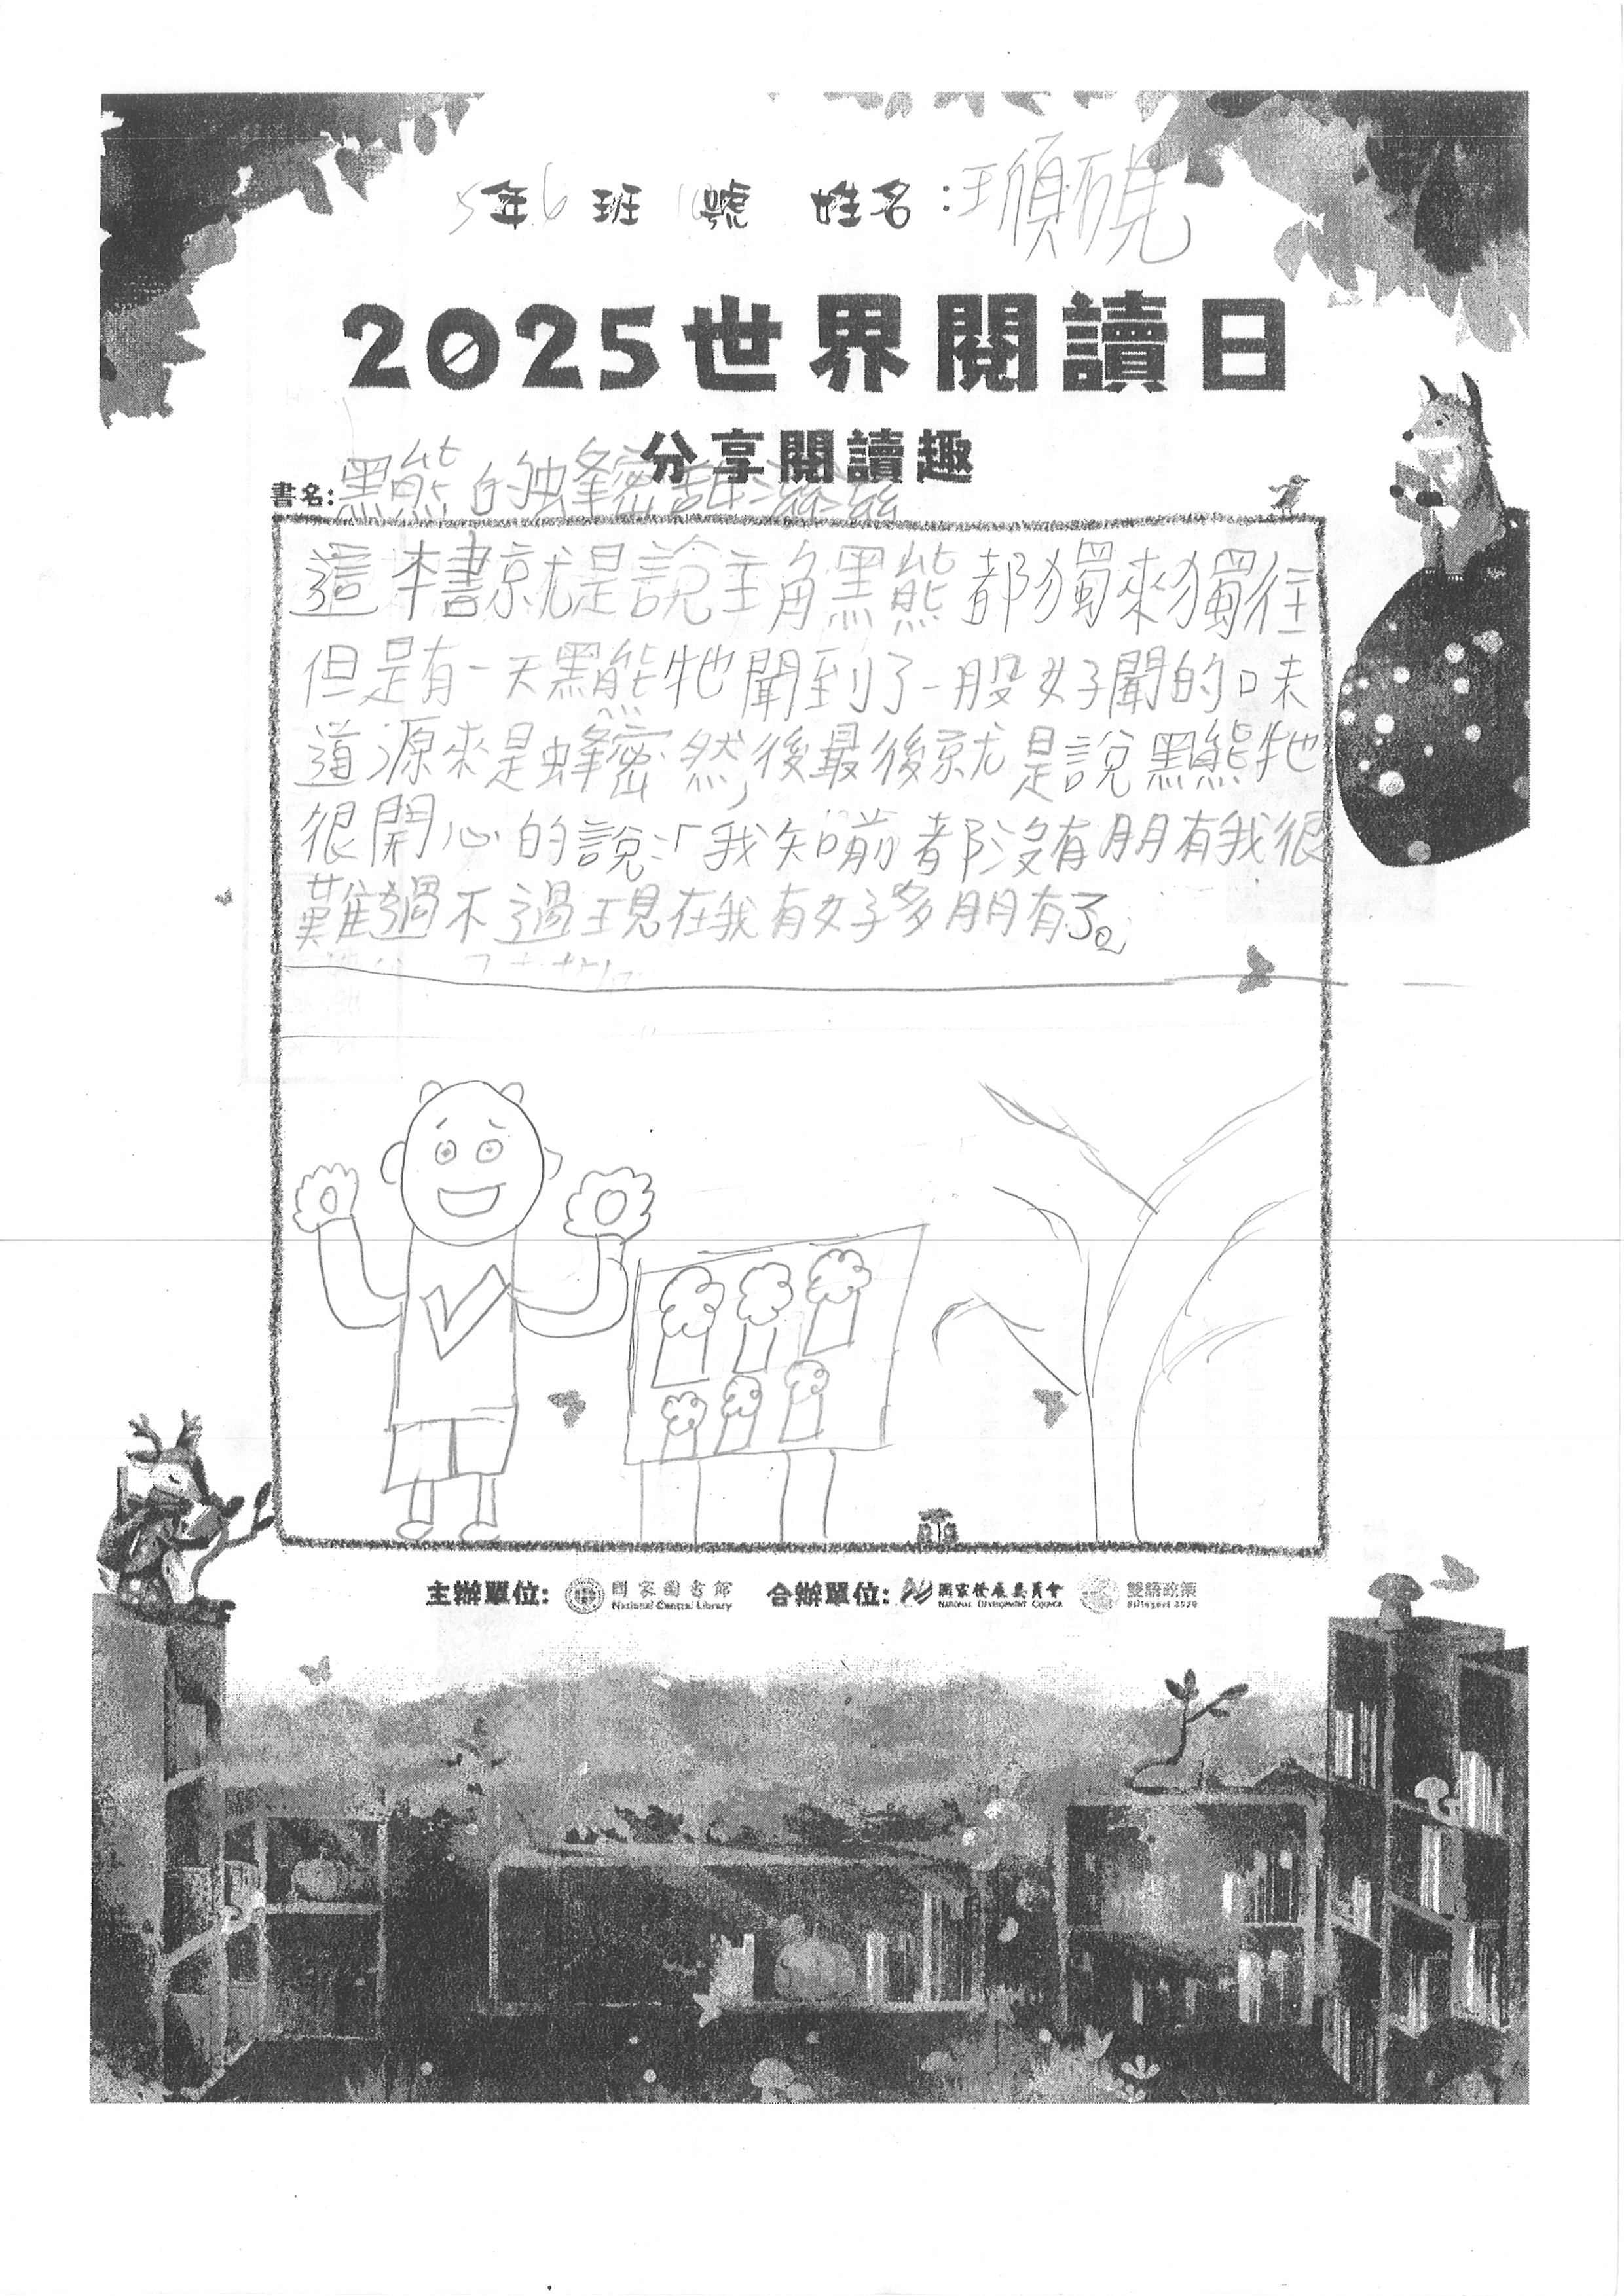 5年6班1號 姓名:王順硯
2025世界閱讀日
分享閱讀趣
書名:黑熊的蜂蜜甜滋滋
這本書就是說主角黑熊都獨來獨往
但是有一天黑熊牠聞到了一股好聞的味
道源來是蜂蜜然後最後就是說黑熊牠
很開心的說:「我知前都沒有朋有我很
難過不過現在我有好多朋有了。
主辦單位: 國家圖書館 National Central Library 合辦單位: 國家發展委員會 NATIONAL DEVELOPMENT COUNCIL 雙語政策 Bilingual 2030